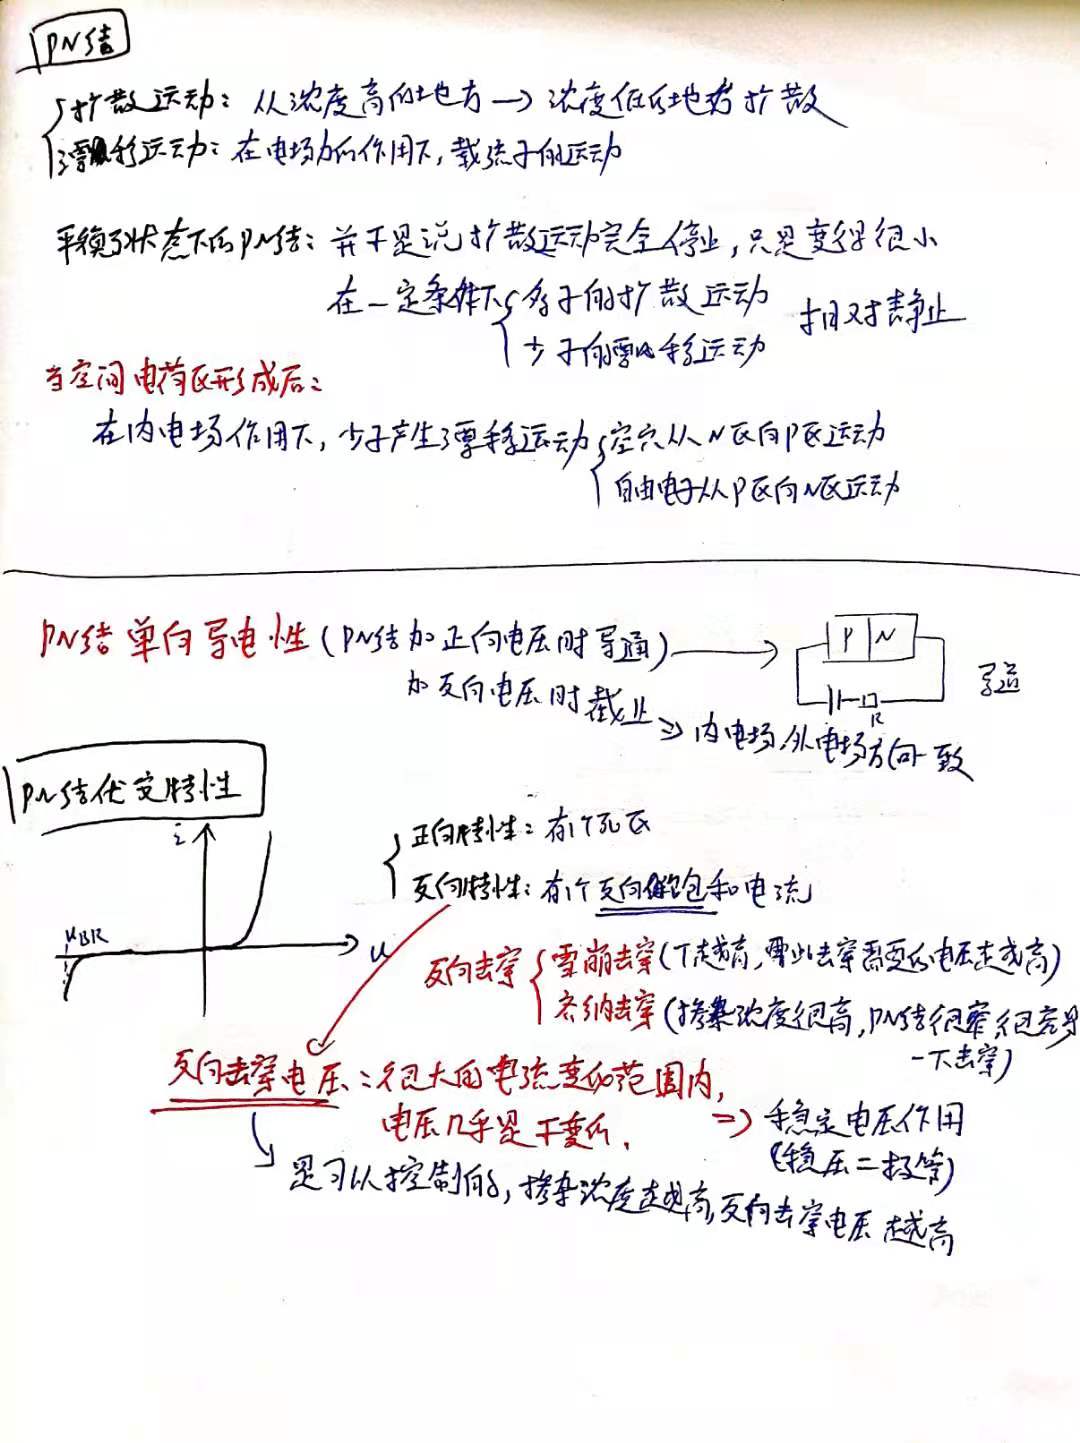 PN结
扩散运动：从浓度高的地方→浓度低的地方扩散
漂移运动：在电场力的作用下，载流子的运动
平衡状态下的PN结：并不是说扩散运动完全停止，只是变得很小
在一定条件下 多子的扩散运动 相对静止
少子的漂移运动
当空间电荷区形成后：
在内电场作用下，少子产生漂移运动 空穴从N区向P区运动
自由电子从P区向N区运动
PN结单向导电性（PN结加正向电压时导通）→ P N
加反向电压时截止 导通
R
⇒内电场，外电场方向一致
PN结伏安特性
i
正向特性：有个死区
反向特性：有个反向饱和电流
uBR
u
反向击穿 雪崩击穿（T越高，雪崩击穿需要的电压越高）
齐纳击穿（掺杂浓度很高，PN结很窄，很容易
一下击穿）
反向击穿电压：很大的电流变化范围内，
电压几乎是不变的， ⇒稳定电压作用
（稳压二极管）
是可以控制的，掺杂浓度越高，反向击穿电压越高